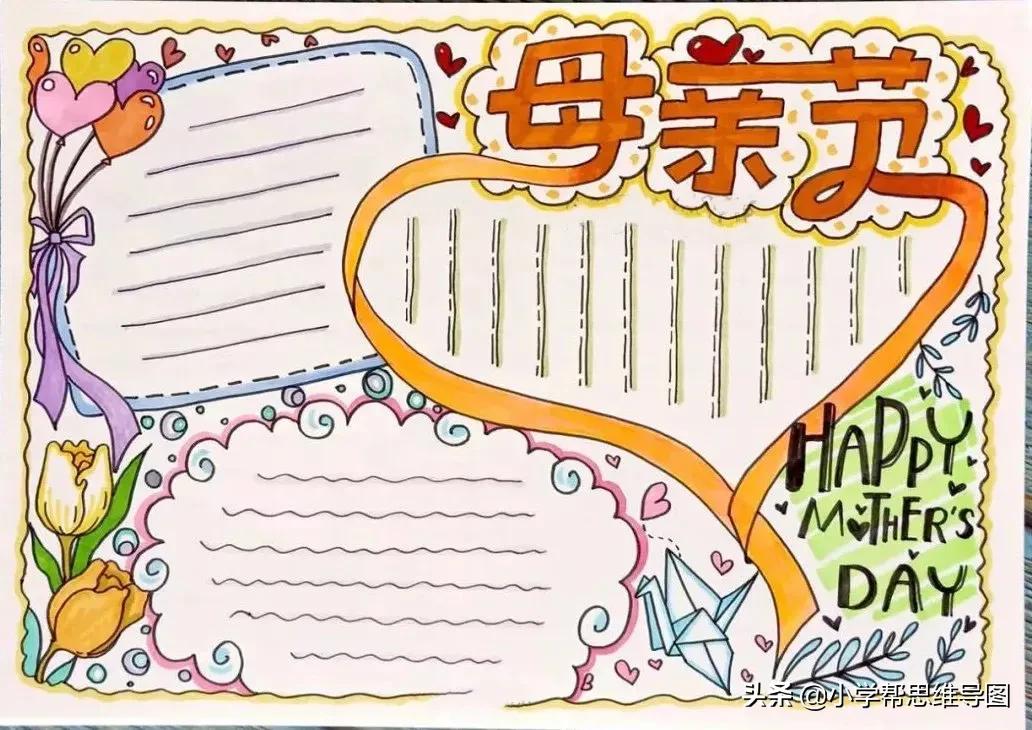 母亲节
HAPPY
MOTHER'S
DAY
头条 @小学帮思维导图